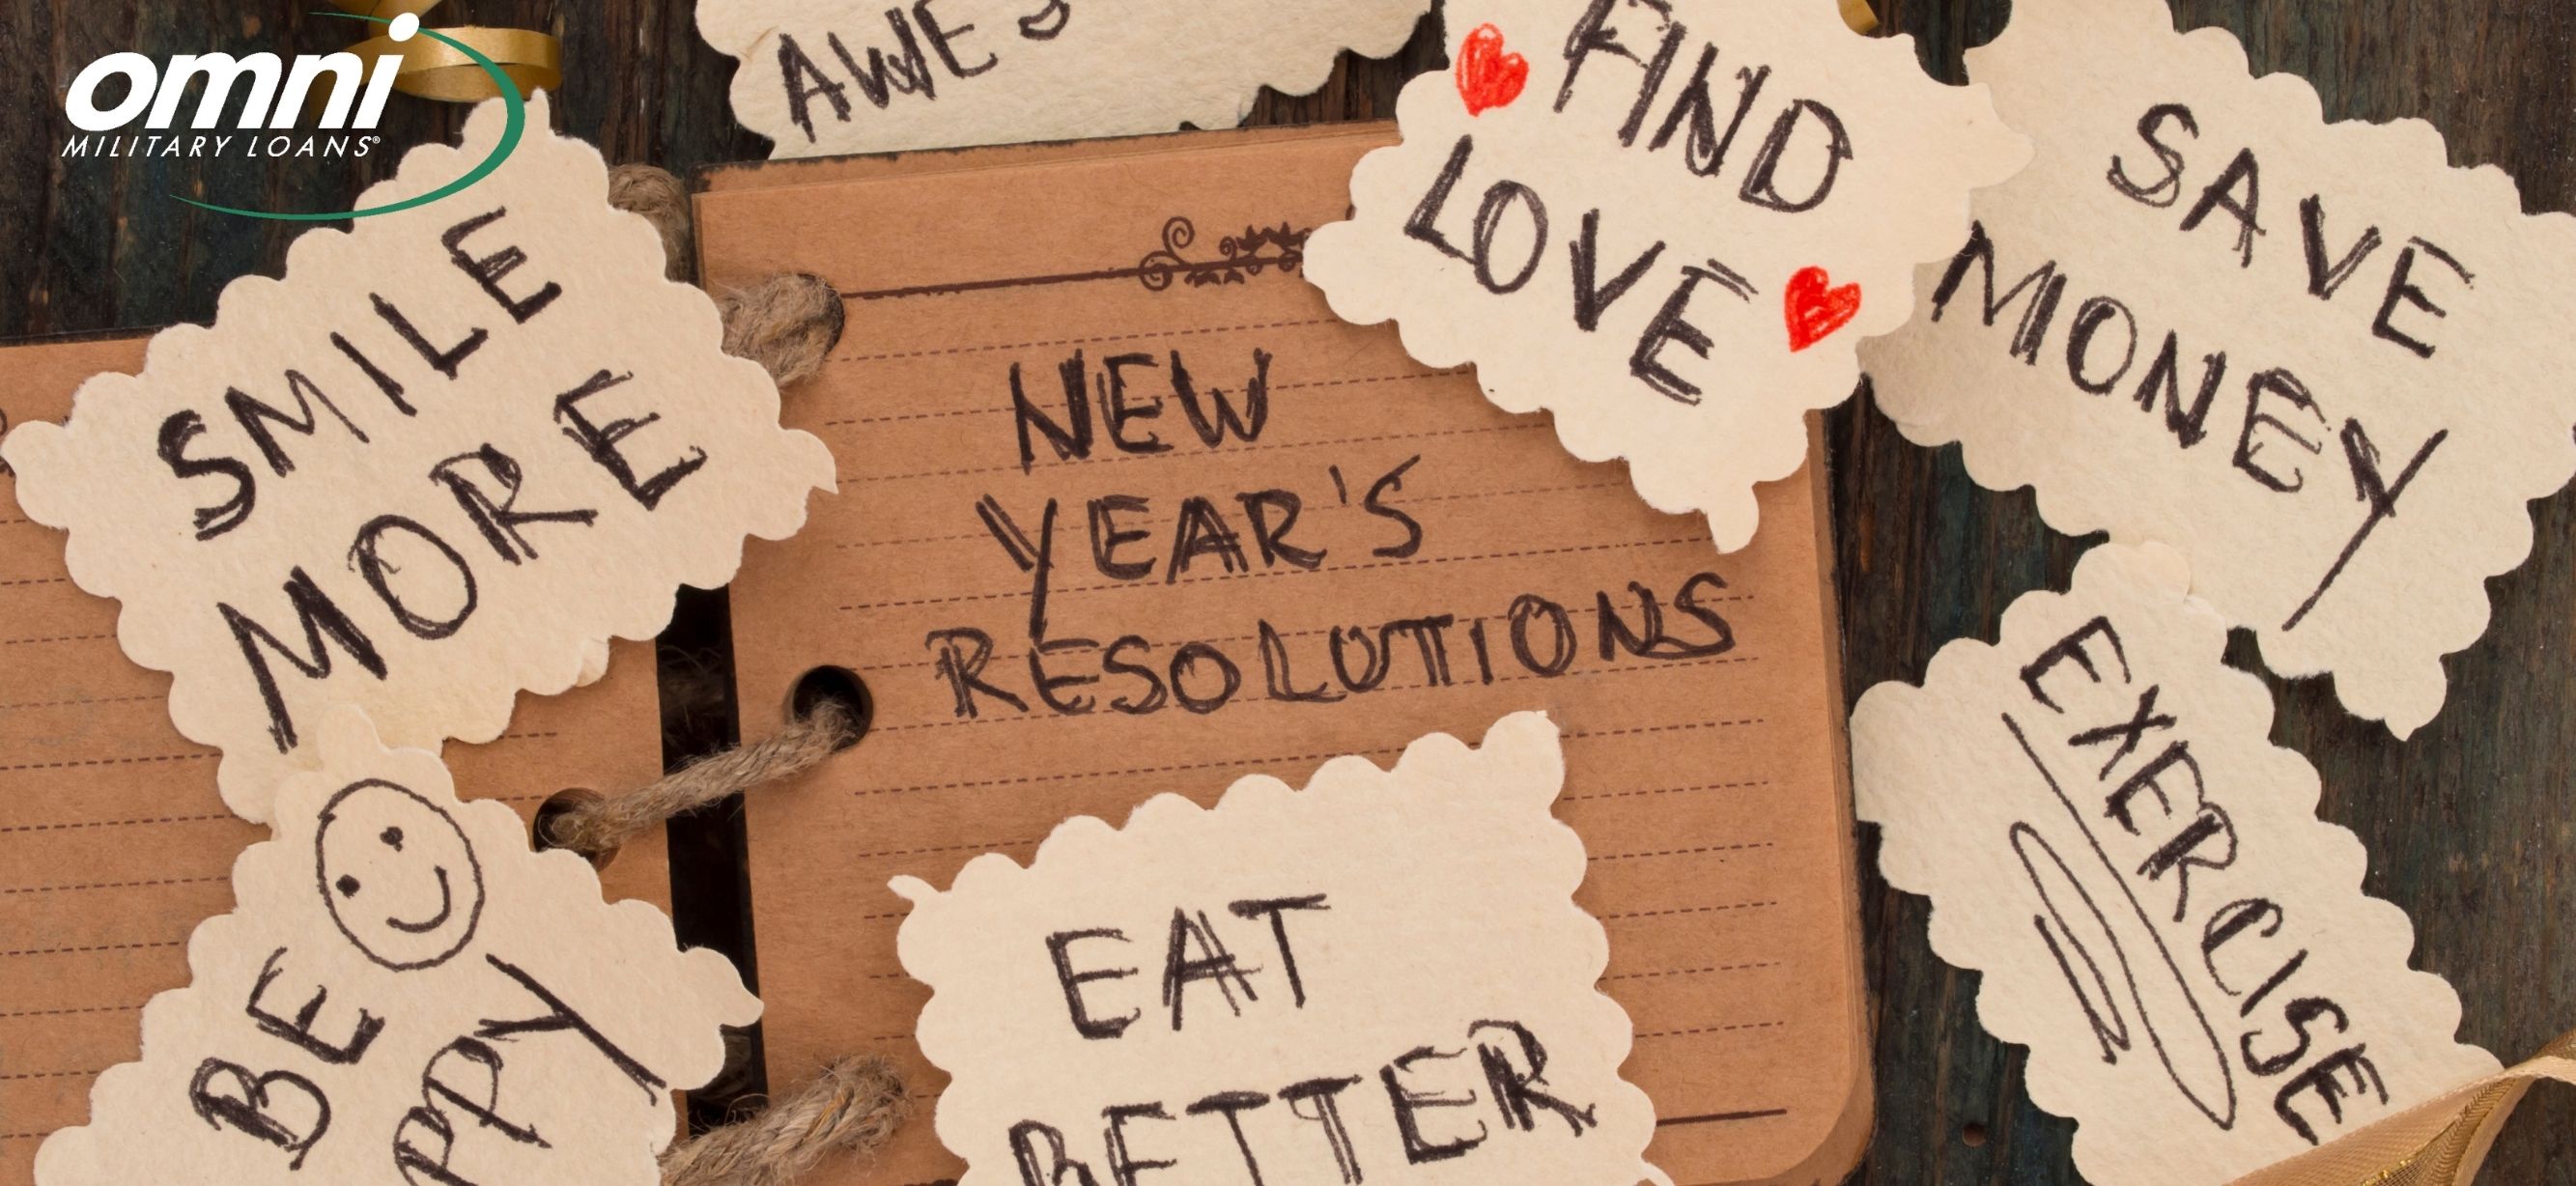 omni
MILITARY LOANS®
AWES
FIND
LOVE
SAVE
MONEY
SMILE
MORE
NEW
YEAR'S
RESOLUTIONS
EXERCISE
BE
PPY
EAT
BETTER